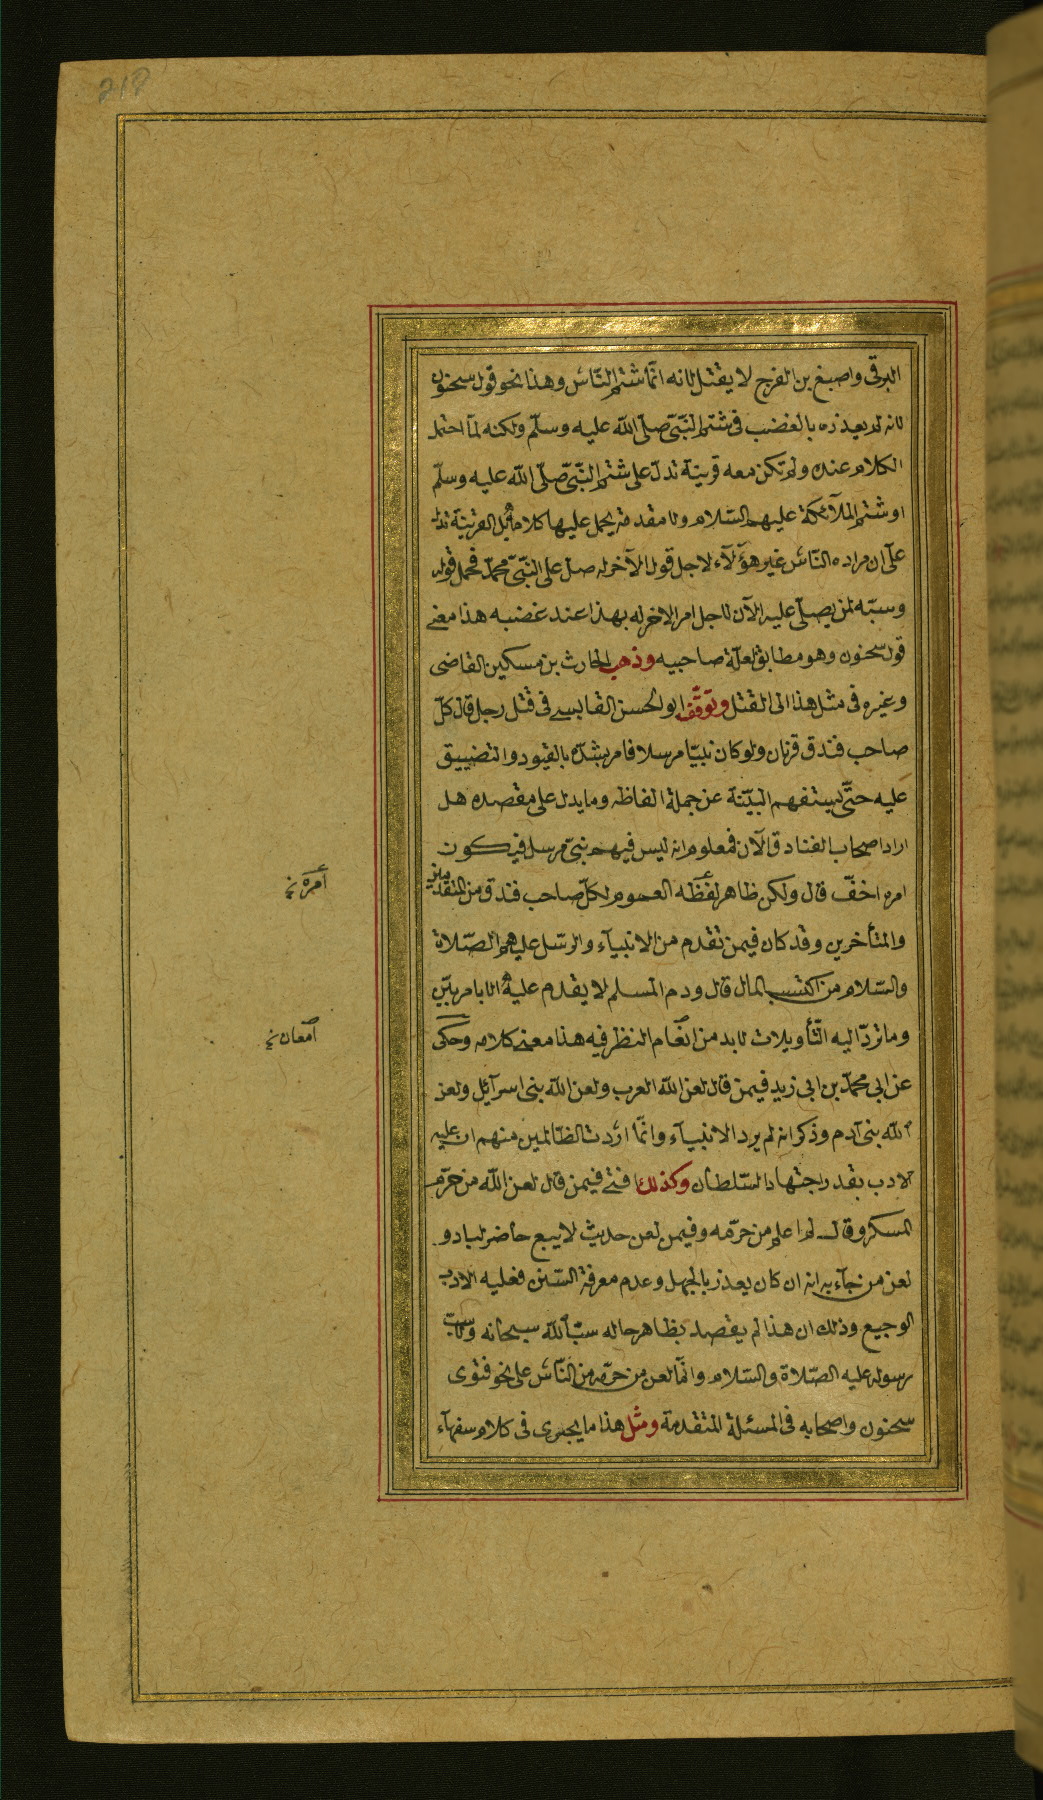 218
البرقى واصبغ بن الفرج لا يقتل لانه انّما شتم النّاس وهذا نحو قول سحنون
لانه لم يعذره بالغضب فى شتم النّبىّ صلّى اللّه عليه وسلّم ولكنه لمّا احتمل
الكلام عنده ولم تكن معه قرينة تدلّ على شتم النّبىّ صلّى اللّه عليه وسلّم
او شتم الملآئكة عليهم السّلام ولا مقدمة يحمل عليها كلامه بل القرينة تدل
على ان مراده النّاس غير هؤلآء لاجل قول الآخر له صل على النّبىّ محمّد فحمل قوله
وسبّه لمن يصلّى عليه الآن لاجل امر الاخر له بهذا عند غضبه هذا معنى
قول سحنون وهو مطابق لعلّة صاحبيه وذهب الحارث بن مسكين القاضى
وغيره فى مثل هذا الى القتل وتوقّف ابو الحسن القابسى فى قتل رجل قال كلّ
صاحب فندق قرنان ولو كان نبيّا مرسلا فامر بشدّه بالقيود والتضييق
عليه حتّى يستفهم البيّنة عن جملة الفاظه وما يدل على مقصده هل
اراد اصحاب الفنادق الآن فمعلوم انه ليس فيهم نبىّ مرسل فيكون
امره اخفّ قال ولكن ظاهر لفظه العموم لكلّ صاحب فندق من المتقدمين
والمتأخرين وقد كان فيمن تقدم من الانبيآء والرسل عليهم الصّلاة
والسّلام من اكتسب المال قال ودم المسلم لا يقدم عليه الا بامر بيّن
وما تردّ اليه التّأويلات لا بد من انعام النظر فيه هذا معنى كلامه وحكى
عن ابى محمّد بن ابى زيد فيمن قال لعن اللّه العرب ولعن اللّه بنى اسرآئيل ولعن
اللّه بنى آدم وذكر انه لم يرد الانبيآء وانّما اردت الظالمين منهم ان عليه
الادب بقدر اجتهاد السّلطان وكذلك افتى فيمن قال لعن اللّه من حرّم
المسكر وقال لم اعلم من حرّمه وفيمن لعن حديث لا يبع حاضر لباد و
لعن من جآء به انه ان كان يعذر بالجهل وعدم معرفة السّنن فعليه الادب
الوجيع وذلك ان هذا لم يقصد بظاهر حاله سبّ اللّه سبحانه ولا سبّ
رسوله عليه الصّلاة والسّلام وانّما لعن من حرّمه من النّاس على نحو فتوى
سحنون واصحابه فى المسئلة المتقدمة ومثل هذا ما يجرى فى كلام سفهآء
أمره نخ
امعان نخ